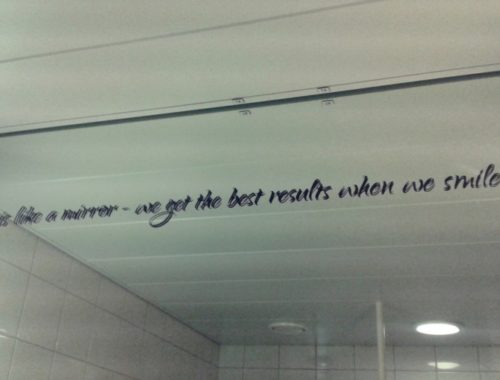 is like a mirror - we get the best results when we smile